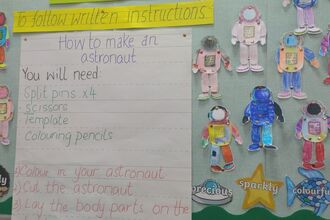 To follow written instructions
How to make an
astronaut
You will need:
Split pins x4
Scissors
Template
Colouring pencils
1) Colour in your astronaut
2) Cut the astronaut
3) Lay the body parts on the
precious
sparkly
colourful